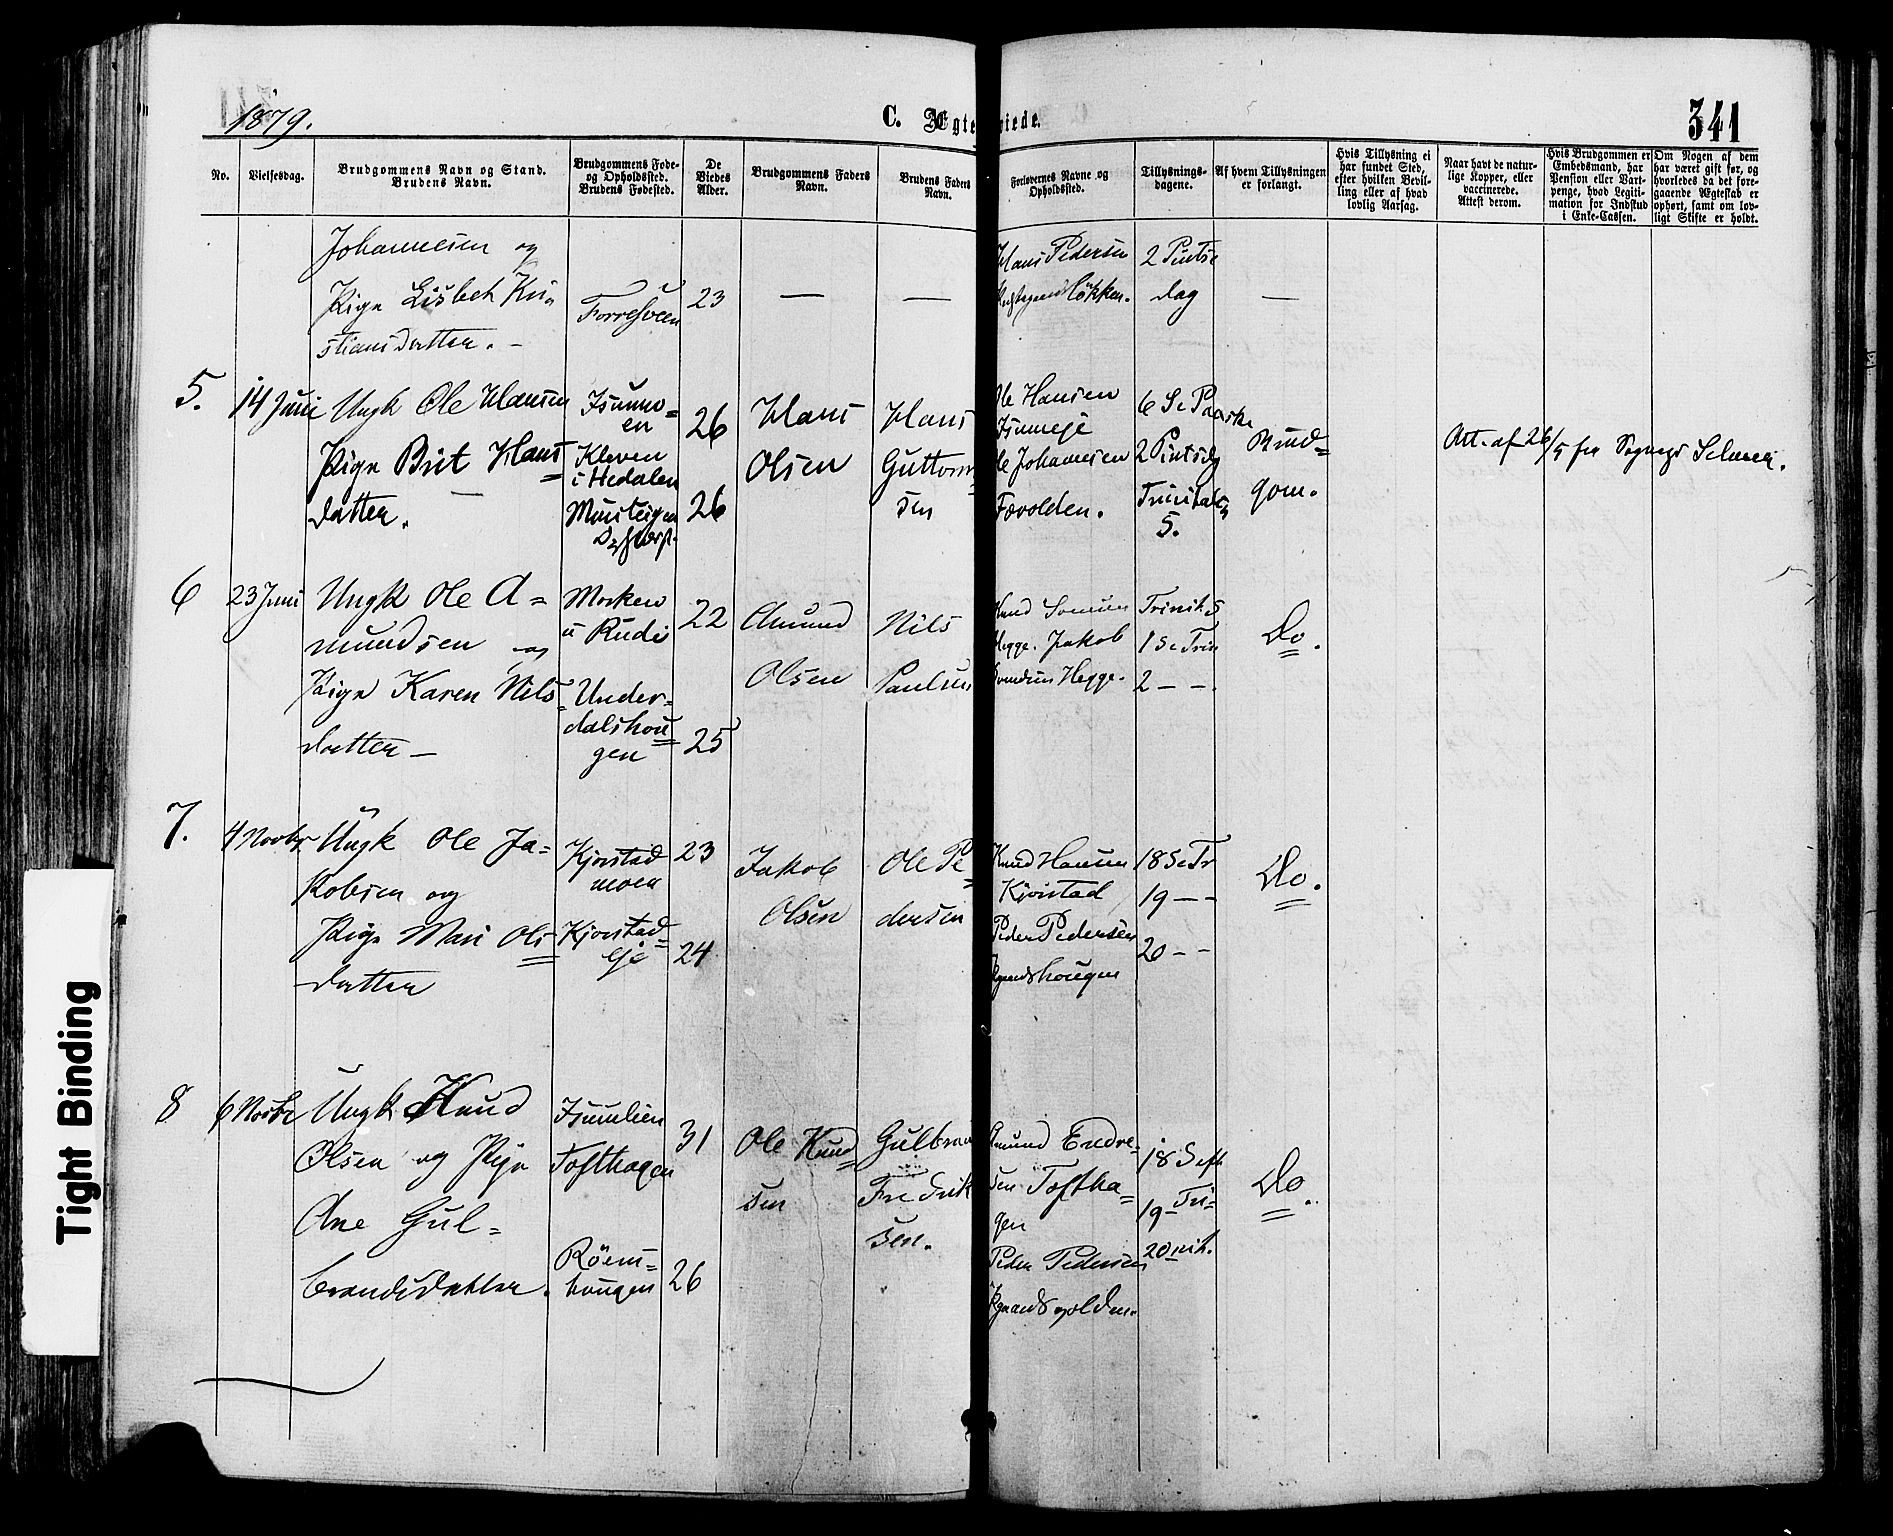 1879.
C. Ægteviede.
341
No.
Vielsesdag.
Brudgommens Navn og Stand.
Brudens Navn.
Brudgommens Føde-
og Opholdssted.
Brudens Fødested.
De
Viedes
Alder.
Brudgommens Faders
Navn.
Brudens Faders
Navn.
Forlovernes Navne og
Opholdssted.
Tillysnings-
dagene.
Af hvem Tillysningen
er forlangt.
Hvis Tillysning ei
har fundet Sted,
efter hvilken Bevil-
ling eller af hvad
lovlig Aarsag.
Naar havt de natur-
lige Kopper, eller
vaccinerede.
Attest derom.
Hvis Brudgommen er
Embedsmand, har
Pension eller Vart-
penge, hvad Legiti-
mation for Indskud
i Enke-Cassen.
Om Nogen af dem
har været gift før, og
hvorledes da det fore-
gaaende Ægteskab er
ophørt, samt om lov-
ligt Skifte er holdt.
Johannesen og
Pige Lisbet Kri-
stiansdatter. -
Forresveen
23
—
—
Hans Pedersen
Løkken.
2 Pintse
dag
—
5.
14 Juni
Ungk Ole Hansen
Pige Brit Hans=
datter.
Isumo=
en
Kleven
i Hedalen
26
26
Hans
Olsen
Hans
Guttorm=
sen
Ole Hansen
Isumeje
Ole Johannesen
Fævolden.
6 S e Paaske
2 Pintsdg
Trinitats
5.
Brud=
gom.
Att. af 26/5 fra Sognepr
6
23 Juni
Ungk Ole A=
mundsen og
Pige Karen Nils=
datter —
Morken
u Rudi
Under=
dalshou=
gen
22
25
Amund
Olsen
Nils
Paulsen
Hegge. Jakob
Hegge.
Trinits
1 S e Trin
2 — —
Do.
7.
4 Novbr
Ungk Ole Ja=
kobsen og
Pige Mari Ols=
datter
Kjorstad
moen
Kjorstad=
eje
23
24
Jakob
Olsen
Ole Pe=
dersen
Knud Hansen
Kjorstad
Peder Pedersen
Bryandshougen
18 S e Tr
19 — —
20 — —
Do.
8
6 Novbr
Ungk. Knud
Olsen og Pige
Ane Gul=
brandsdatter.
Isumlien
Tofthagen
Røem=
hougen
31
26
Ole Knud=
sen
Gulbran
Fredrik
sen.
Amund Endre=
sen Toftha=
gen
Peder Pedersen
18 S eft
19 — Tri=
20 nit.
Do.
Tight Binding